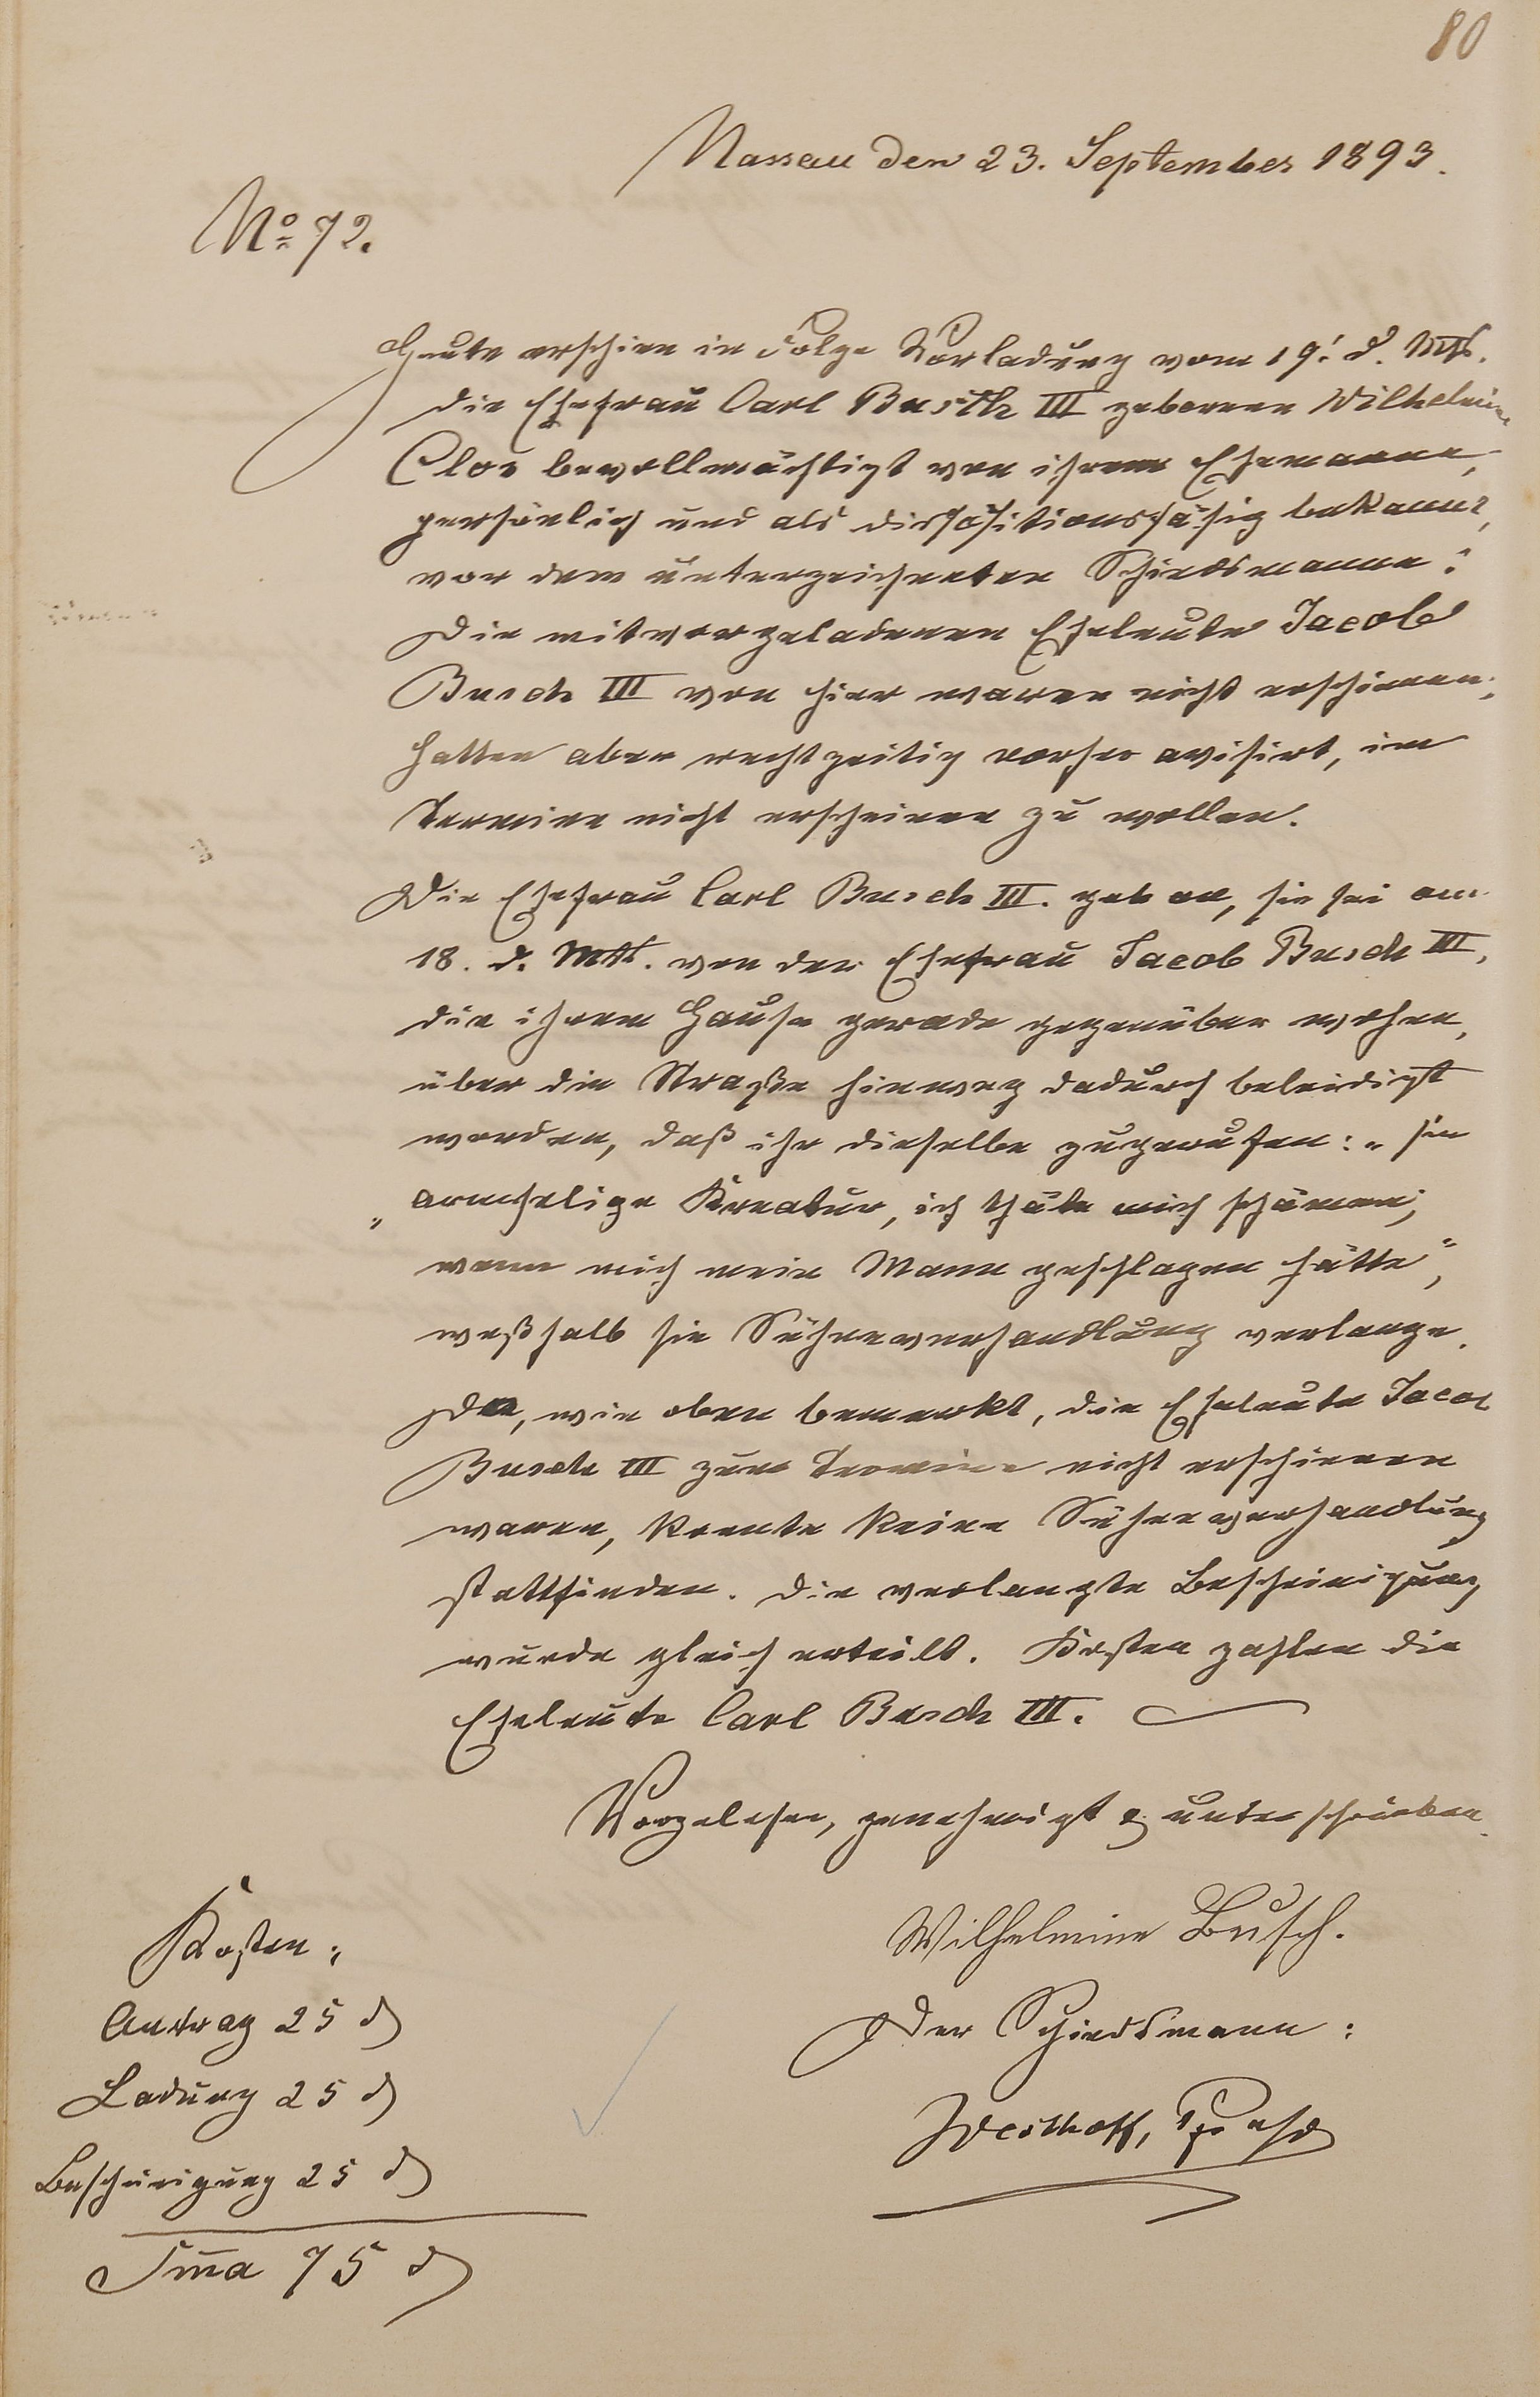 80
Nassau den 23. September 1893.
No 72.
Heute erschien in Folge Vorladung vom 19. d. Mts.
die Ehefrau Carl Busch III geborene Wilhelmine
Clos bevollmächtigt von ihrem Ehemanne,
persönlich und als dispositionsfähig bekannt,
vor dem unterzeichneten Schiedsmanne:
Die mitvorgeladenen Eheleute Jacob
Busch III von hier waren nicht erschienen,
hatten aber rechtzeitig vorher avisirt, im
Termine nicht erscheinen zu wollen.
Die Ehefrau Carl Busch III. gab an, sie sei am
18. d. Mts. von der Ehefrau Jacob Busch III,
die ihrem Hause gerade gegenüber wohne,
über die Straße hinweg dadurch beleidigt
worden, daß ihr dieselbe zugerufen: „sie
„armselige Kreatur, ich thäte mich schämen,
wenn mich mein Mann geschlagen hätte",
weßhalb sie Sühneverhandlung verlange.
Da, wie oben bemerkt, die Eheleute Jacob
Busch III zum Termine nicht erschienen
waren, konnte keine Sühneverhandlung
stattfinden. Die verlangte Bescheinigung
wurde gleich erteilt. Kosten zahlen die
Eheleute Carl Busch III.
Vorgelesen, genehmigt & unterschrieben.
Wilhelmine Busch.
Der Schiedsmann:
Kosten:
Antrag 25 ₰
Ladung 25 ₰
Bescheinigung 25 ₰
Sma 75 ₰